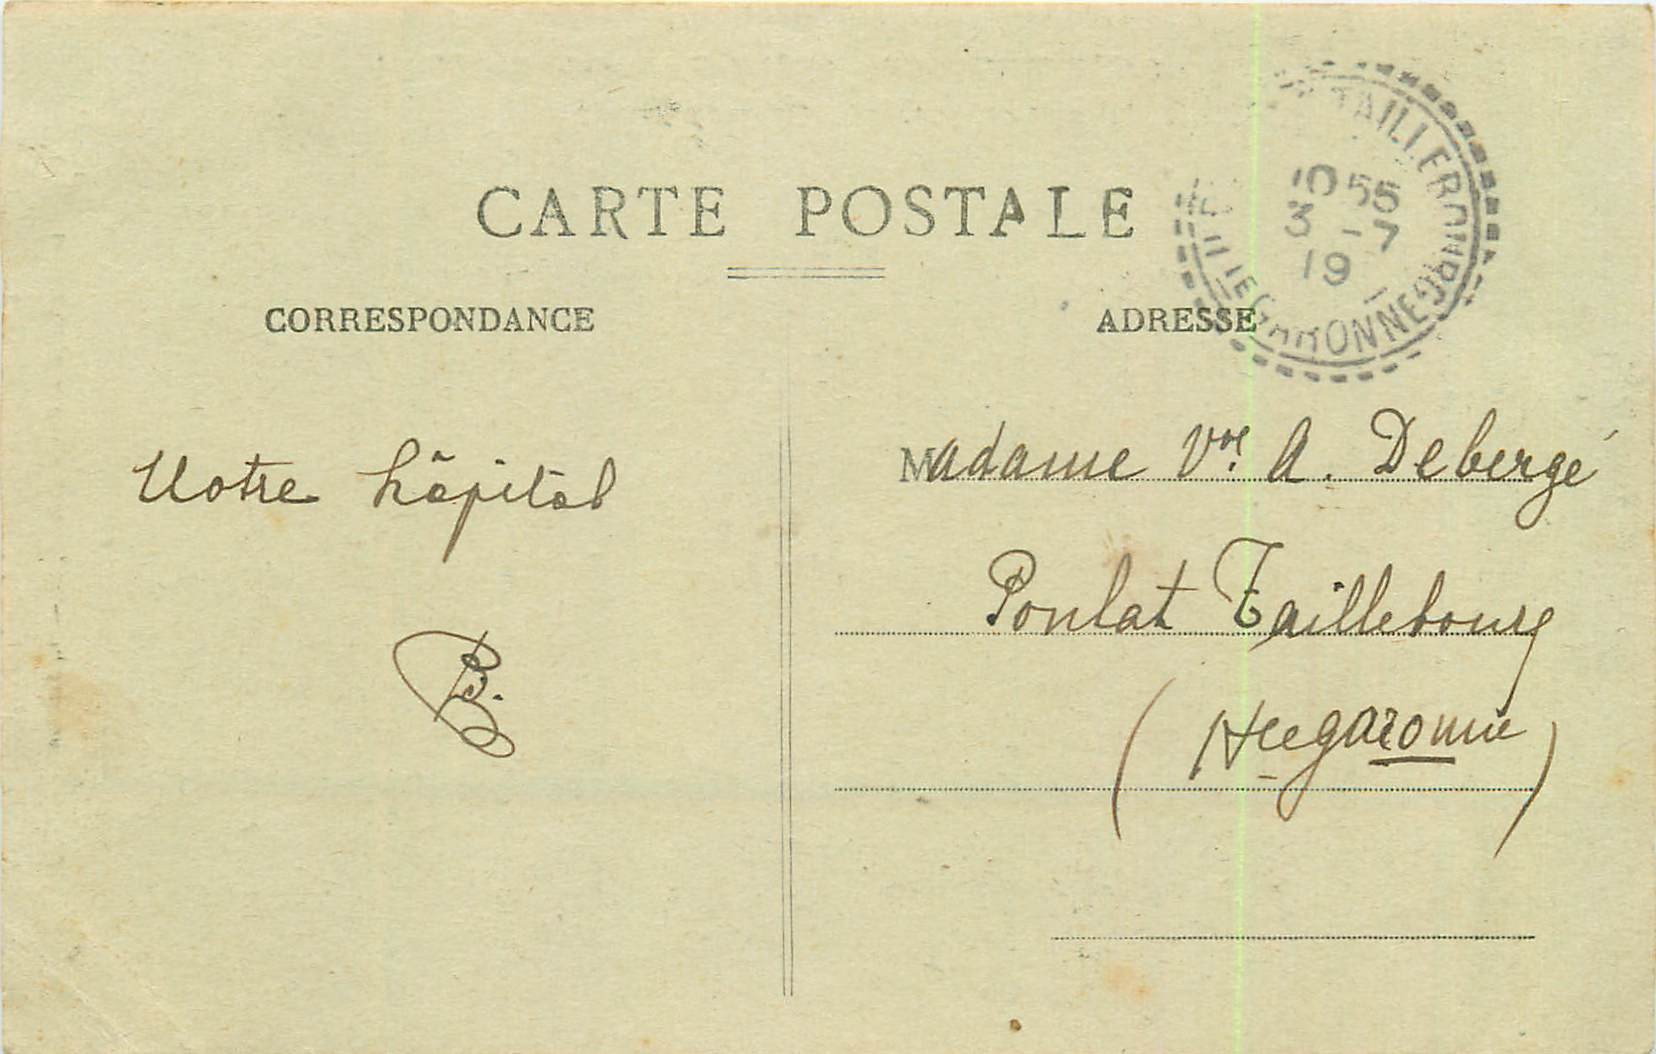 CARTE POSTALE
CORRESPONDANCE
ADRESSE
TAILLEBOURG
10 55
3 - 7
19
HTE GARONNE
Notre hôpital
B.
Madame Vve A. Debergé
Poulat Taillebourg
(Hte garonne)